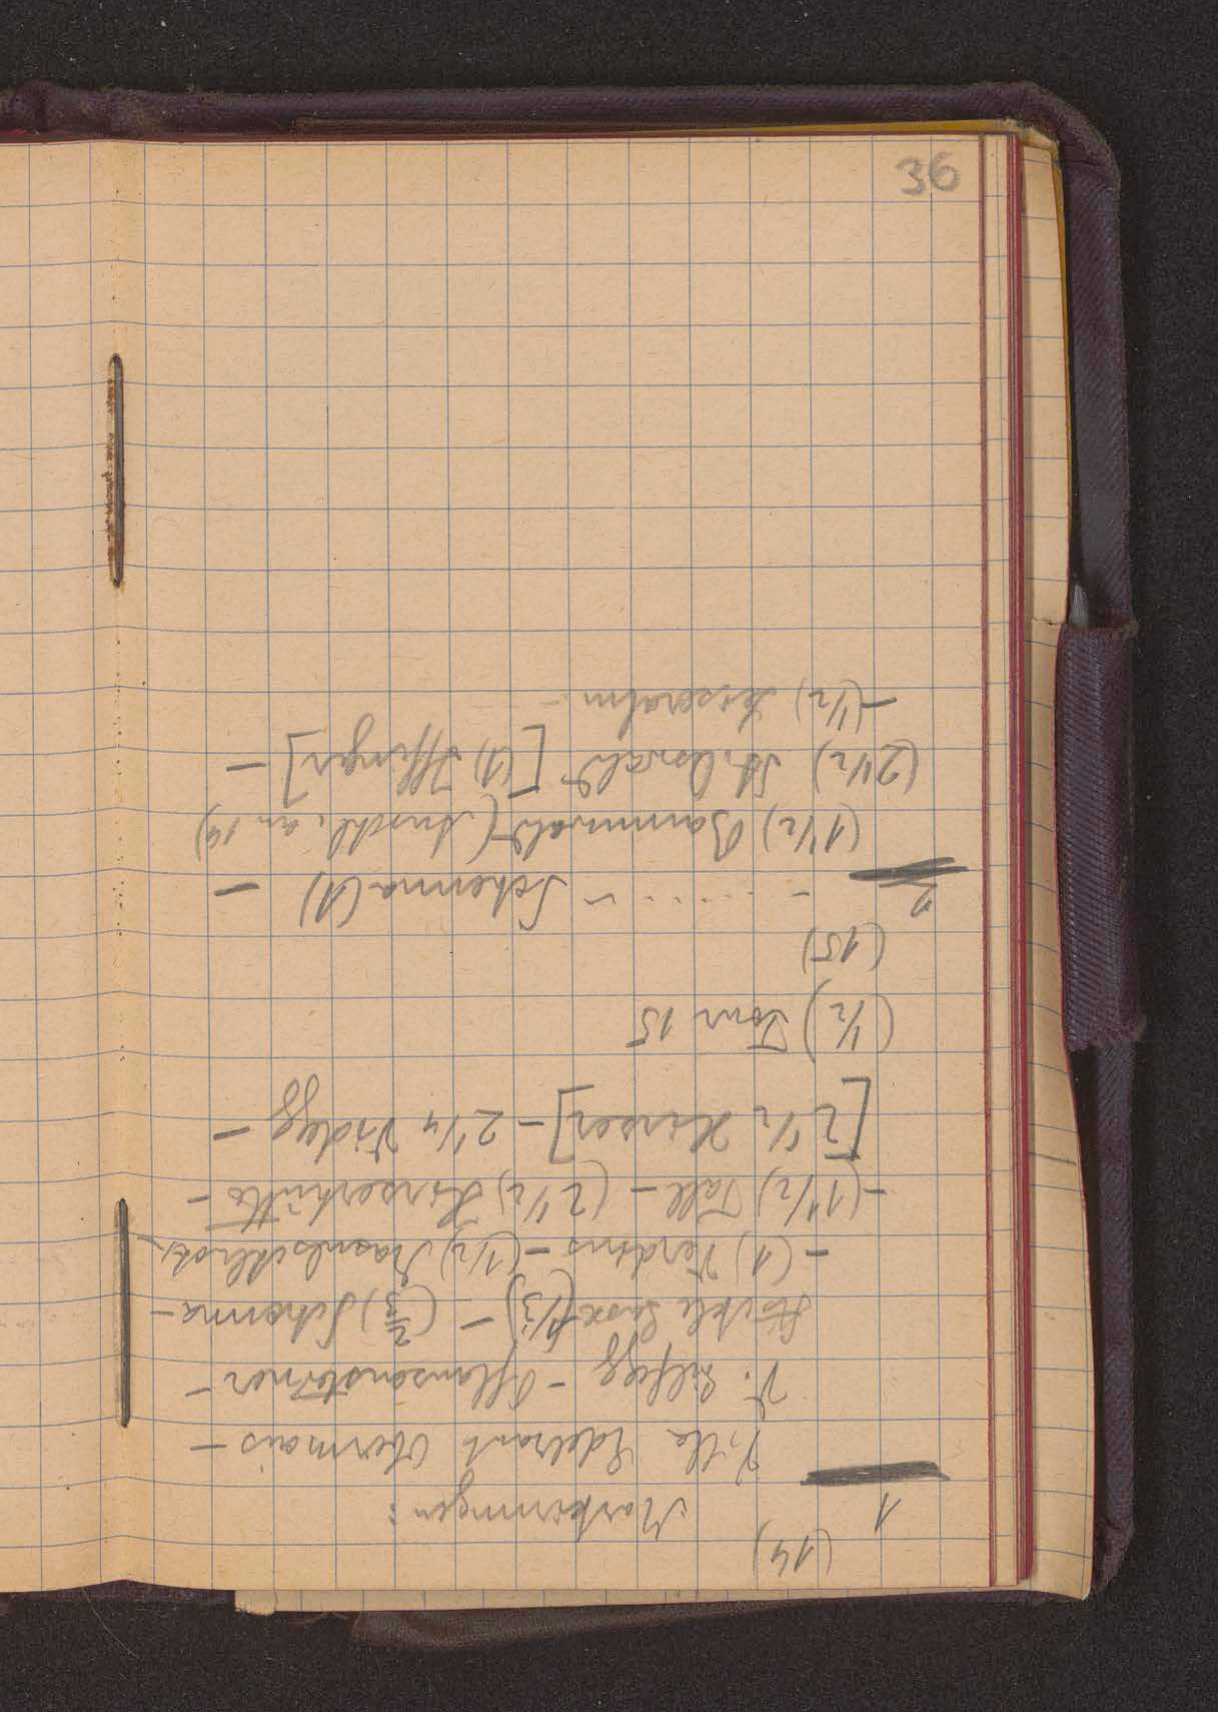 36
(14)
Markierungen:
1
Villa Edelrant Obermais –
V. Hilfegg – Pflanzensteiner –
Stickle Gasse (1/3) – (2/3) Schenna –
– (1) Verdins – (1/2) Masulschlucht,
– (1 1/2) Tall – (2 1/2) Hirzerhütte –
[2 1/2 Hirzer] – 2 1/4 Videgg –
(1/2) Tour 15
(15)
2
– ..... – Schenna (1) –
(1 1/2) Baumwald (Anschl. an 14)
(2 1/2) St. Oswald [(1) Iffinger] –
– (1/2)